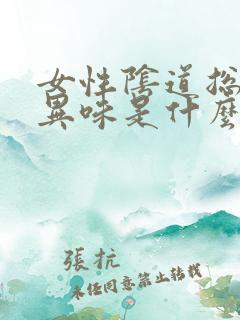 女性陰道松
異味是什麼
張抗
未任同意禁止转载